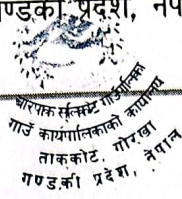 ण्डकी प्रदेश, नेप
बारपाक सुलिकोट गाउँपालिका
गाउँ कार्यपालिकाको कार्यालय
ताककोट, गोरखा
गण्डकी प्रदेश, नेपाल